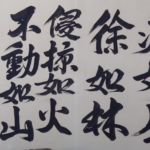 如
徐如林
侵掠如火
不動如山